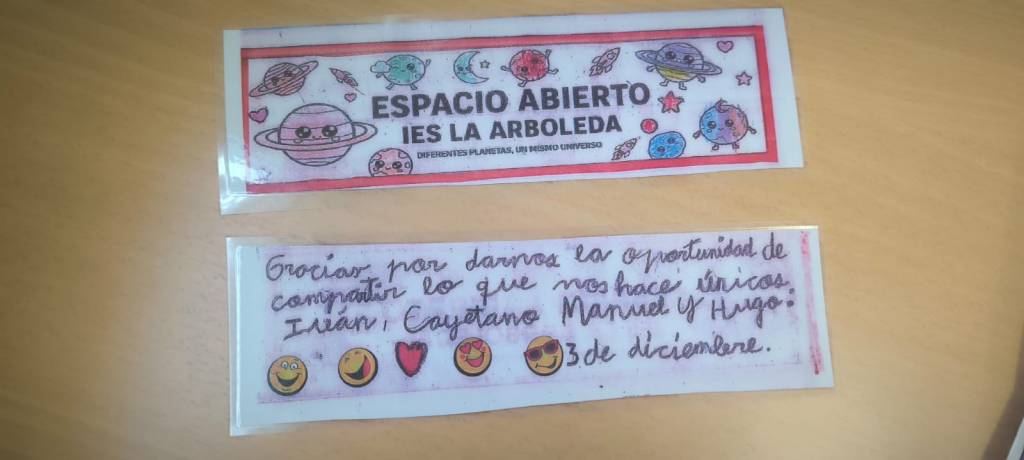 ESPACIO ABIERTO
IES LA ARBOLEDA
DIFERENTES PLANETAS, UN MISMO UNIVERSO
Gracias por darnos la oportunidad de
compartir lo que nos hace únicos:
Iván, Cayetano Manuel y Hugo.
3 de diciembre.